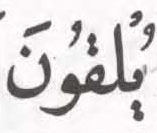 يُلْقُونَ